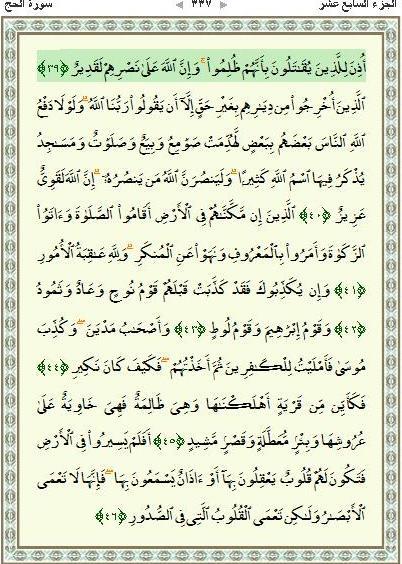 سورة الحج ٣٣٧ الجزء السابع عشر
أُذِنَ لِلَّذِينَ يُقَٰتَلُونَ بِأَنَّهُمْ ظُلِمُوا۟ ۚ وَإِنَّ ٱللَّهَ عَلَىٰ نَصْرِهِمْ لَقَدِيرٌ ﴿٣٩﴾
ٱلَّذِينَ أُخْرِجُوا۟ مِن دِيَٰرِهِم بِغَيْرِ حَقٍّ إِلَّآ أَن يَقُولُوا۟ رَبُّنَا ٱللَّهُ ۗ وَلَوْلَا دَفْعُ
ٱللَّهِ ٱلنَّاسَ بَعْضَهُم بِبَعْضٍ لَّهُدِّمَتْ صَوَٰمِعُ وَبِيَعٌ وَصَلَوَٰتٌ وَمَسَٰجِدُ
يُذْكَرُ فِيهَا ٱسْمُ ٱللَّهِ كَثِيرًا ۗ وَلَيَنصُرَنَّ ٱللَّهُ مَن يَنصُرُهُۥٓ ۗ إِنَّ ٱللَّهَ لَقَوِىٌّ
عَزِيزٌ ﴿٤٠﴾ ٱلَّذِينَ إِن مَّكَّنَّٰهُمْ فِى ٱلْأَرْضِ أَقَامُوا۟ ٱلصَّلَوٰةَ وَءَاتَوُا۟
ٱلزَّكَوٰةَ وَأَمَرُوا۟ بِٱلْمَعْرُوفِ وَنَهَوْا۟ عَنِ ٱلْمُنكَرِ ۗ وَلِلَّهِ عَٰقِبَةُ ٱلْأُمُورِ
﴿٤١﴾ وَإِن يُكَذِّبُوكَ فَقَدْ كَذَّبَتْ قَبْلَهُمْ قَوْمُ نُوحٍ وَعَادٌ وَثَمُودُ
﴿٤٢﴾ وَقَوْمُ إِبْرَٰهِيمَ وَقَوْمُ لُوطٍ ﴿٤٣﴾ وَأَصْحَٰبُ مَدْيَنَ ۖ وَكُذِّبَ
مُوسَىٰ فَأَمْلَيْتُ لِلْكَٰفِرِينَ ثُمَّ أَخَذْتُهُمْ ۖ فَكَيْفَ كَانَ نَكِيرِ ﴿٤٤﴾
فَكَأَيِّن مِّن قَرْيَةٍ أَهْلَكْنَٰهَا وَهِىَ ظَالِمَةٌ فَهِىَ خَاوِيَةٌ عَلَىٰ
عُرُوشِهَا وَبِئْرٍ مُّعَطَّلَةٍ وَقَصْرٍ مَّشِيدٍ ﴿٤٥﴾ أَفَلَمْ يَسِيرُوا۟ فِى ٱلْأَرْضِ
فَتَكُونَ لَهُمْ قُلُوبٌ يَعْقِلُونَ بِهَآ أَوْ ءَاذَانٌ يَسْمَعُونَ بِهَا ۖ فَإِنَّهَا لَا تَعْمَى
ٱلْأَبْصَٰرُ وَلَٰكِن تَعْمَى ٱلْقُلُوبُ ٱلَّتِى فِى ٱلصُّدُورِ ﴿٤٦﴾